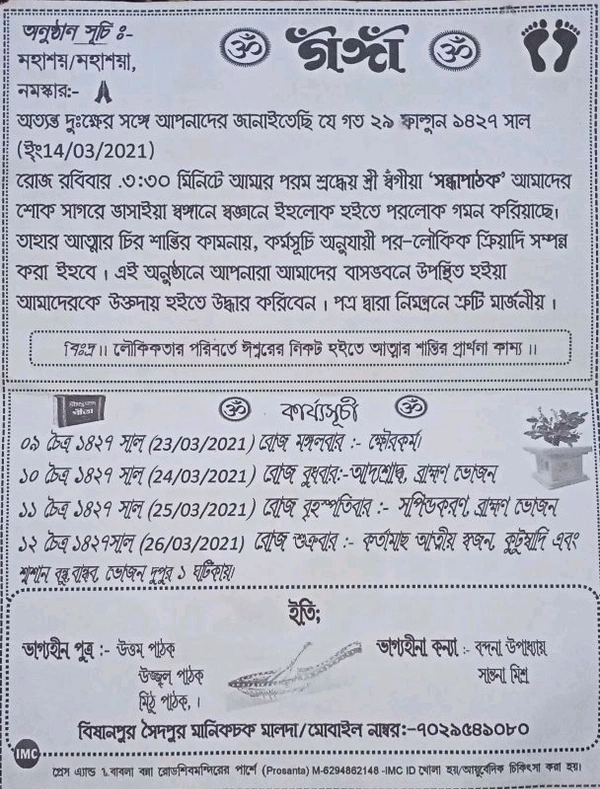 অনুষ্ঠান সূচি ঃ-
ॐ গঁঙ্গা ॐ
মহাশয়/মহাশয়া,
নমস্কার:-
অত্যন্ত দুঃক্ষের সঙ্গে আপনাদের জানাইতেছি যে গত ২৯ ফাল্গুন ১৪২৭ সাল
(ইং14/03/2021)
রোজ রবিবার .৩:৩০ মিনিটে আমার পরম শ্রদ্ধেয় শ্রী স্বঁগীয়া ‘সন্ধ্যাপাঠক’ আমাদের
শোক সাগরে ভাসাইয়া স্বঙ্গানে স্বজ্ঞানে ইহলোক হইতে পরলোক গমন করিয়াছে।
তাহার আত্মার চির শান্তির কামনায়, কর্মসূচি অনুযায়ী পর-লৌকিক ক্রিয়াদি সম্পন্ন
করা ইহবে । এই অনুষ্ঠানে আপনারা আমাদের বাসভবনে উপস্থিত হইয়া
আমাদেরকে উক্তদায় হইতে উদ্ধার করিবেন । পত্র দ্বারা নিমন্ত্রনে ত্রুটি মার্জনীয় ।
বিঃদ্র।। লৌকিকতার পরিবর্তে ঈশ্বরের নিকট হইতে আত্মার শান্তির প্রার্থনা কাম্য ।।
ॐ কার্য্যসূচী ॐ
গীতা
০৯ চৈত্র ১৪২৭ সাল (23/03/2021) রোজ মঙ্গলবার :- ক্ষৌরকর্ম।
১০ চৈত্র ১৪২৭ সাল (24/03/2021) রোজ বুধবার:-আদ্যশ্রাদ্ধ, ব্রাহ্মণ ভোজন
১১ চৈত্র ১৪২৭ সাল (25/03/2021) রোজ বৃহস্পতিবার :- সপিন্ডকরণ, ব্রাহ্মণ ভোজন
১২ চৈত্র ১৪২৭সাল (26/03/2021) রোজ শুক্রবার :- কর্তামাছ আত্মীয় স্বজন, কুটুম্বাদি এবং
শ্মশান বন্ধু বান্ধব, ভোজন দুপুর ১ ঘটিকায়।
ইতি;
ভাগ্যহীন পুত্র :- উত্তম পাঠক
উজ্জ্বল পাঠক
মিঠু পাঠক, ।
ভাগ্যহীনা কন্যা :- বন্দনা উপাধ্যায়
সান্তনা মিশ্র
বিষানপুর সৈদপুর মানিকচক মালদা/মোবাইল নাম্বর:-৭০২৯৫৪৯০৮০
IMC প্রেস এ্যান্ড বাবলা বনা রোডশিবমন্দিরের পার্শে (Prosanta) M-6294862148 -IMC ID খোলা হয়/আয়ুর্বেদিক চিকিৎসা করা হয়।